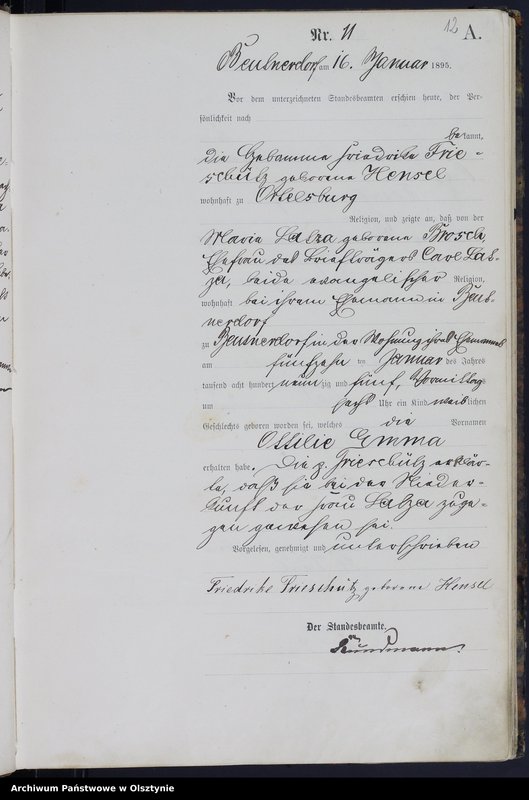 12
Nr. 11 A.
Beutnerdorf am 16. Januar 1895.
Vor dem unterzeichneten Standesbeamten erschien heute, der Per-
sönlichkeit nach
bekannt,
die Hebamme Friedrike Frie-
schütz geborene Hensel
wohnhaft zu Ortelsburg
Religion, und zeigte an, daß von der
Maria Latza geborene Brosch,
Ehefrau des Briefträgers Carl Lat-
za, beide evangelischer Religion,
wohnhaft bei ihrem Ehemann in Beut-
nerdorf
zu Beutnerdorf in der Wohnung ihres Ehemannes
am fünfzehn ten Januar des Jahres
tausend acht hundert neun zig und fünf, Vormittag
um sechs Uhr ein Kind weib lichen
Geschlechts geboren worden sei, welches die Vornamen
Ottilie Emma
erhalten habe. Die p. Frieschütz erklär-
te, daß sie bei der Nieder-
kunft der Frau Latza zuge-
gen gewesen sei.
Vorgelesen, genehmigt und unterschrieben
Friedrike Frieschütz geborene Hensel
Der Standesbeamte.
Archiwum Państwowe w Olsztynie